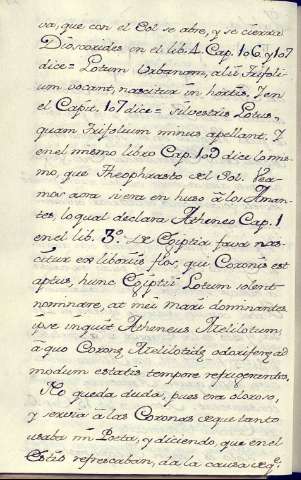 va, que con el Sol se abre, y se cierra
Dioscorides en el lib. 4. Cap. 106. y 107
dice = Lotum Urbanam, alii Trifoli-
um vocant, nascitur in hortis. Y en
el Capit. 107 dice = Silvestris Lotus,
quam Trifolium minus apellant. Y
en el mismo libro Cap. 109 dice lo mis-
mo, que Theophrasto del Sol. Vea-
mos aora si era en huso à los Aman-
tes, lo qual declara Atheneo Cap. 1
en el lib. 3º. De Egiptia fava nas-
citur ex liboriis flos, qui Coronis est
aptus, hunc Egiptii Lotum solent
nominare, at mei dominantes
ipse inquit Atheneus Melilotum,
à quo Coronę Melilotidę odoriferę ad
modum estatis tempore refrigerantes.
No queda duda, pues era oloroso,
y servia à las Coronas de que tanto
usaba mi Poeta, y diciendo, que en el
Estio refrescaban, da la causa de qe.